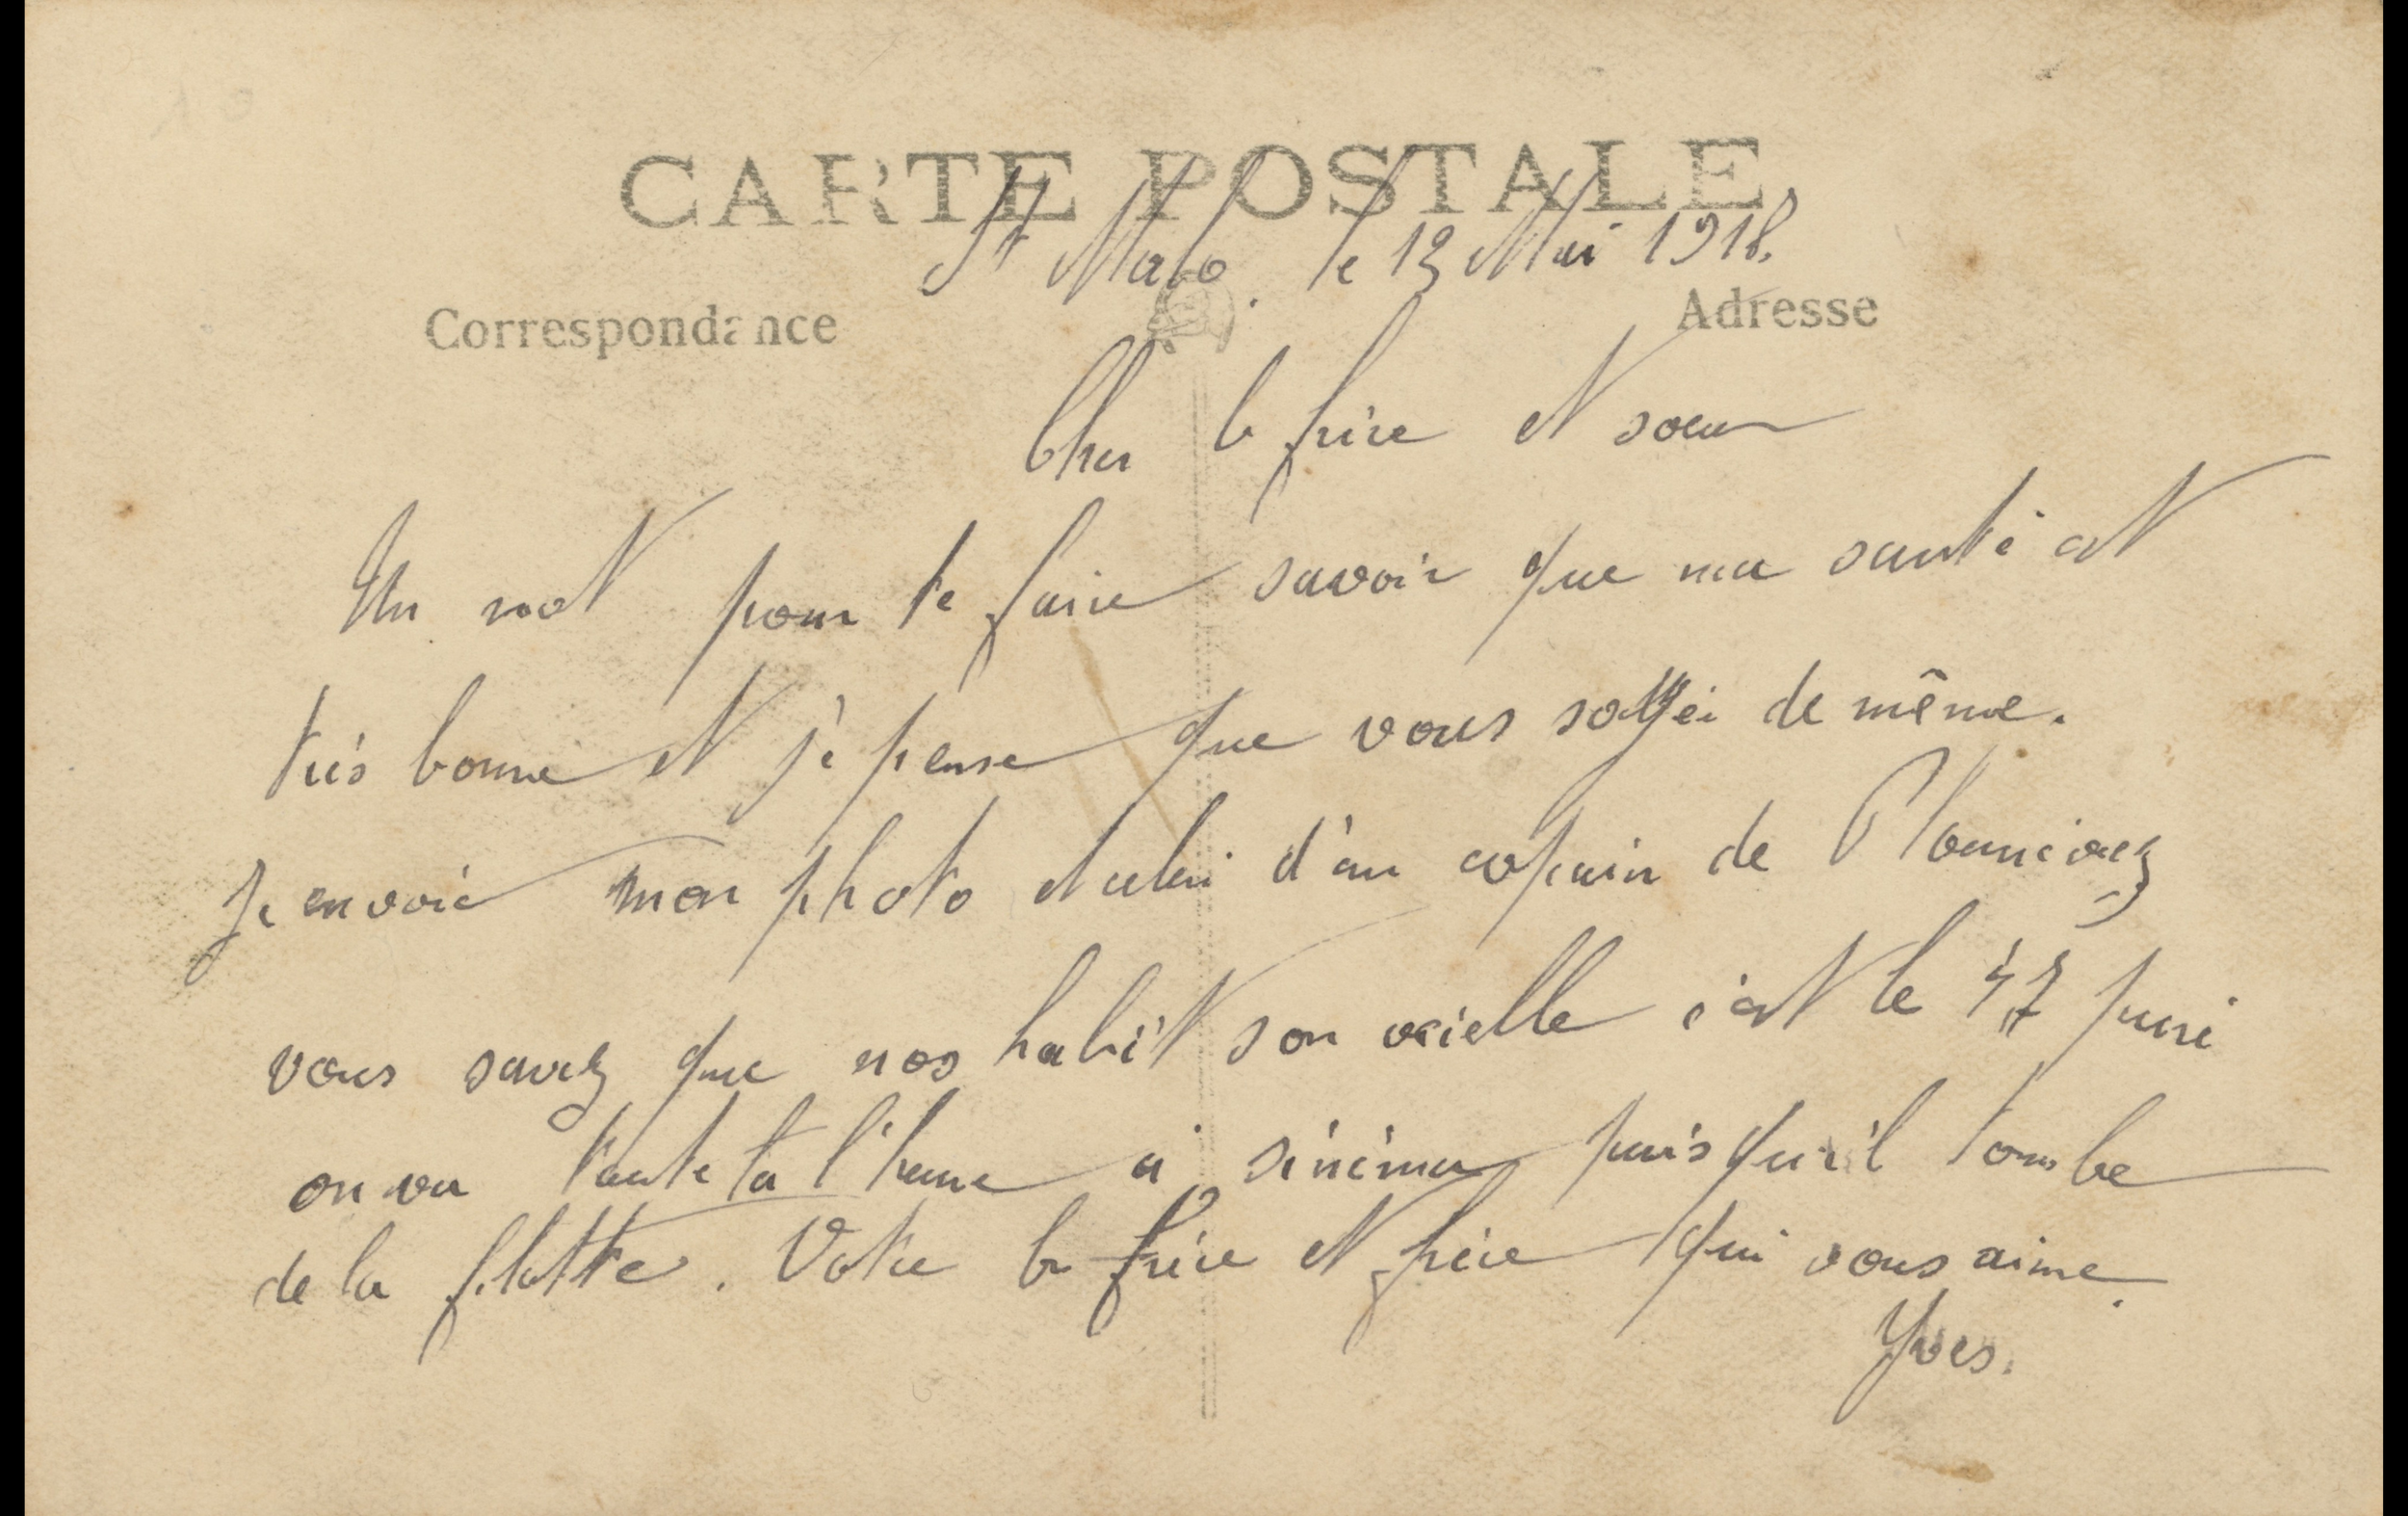 CARTE POSTALE
St Malo. le 13 Mai 1918.
Correspondance
Adresse
Cher b frère et soeur
Un mot pour te faire savoir que ma santé est
très bonne et je pense que vous soyei de même.
Je envoie mon photo et celui d'un copain de
vous savez que nos habit son vieille c'est le 47
on va taute ta l'heure a sinéma puisqu'il tombe
de la flotte. Votre b frère et frère qui vous aime.
Yves.